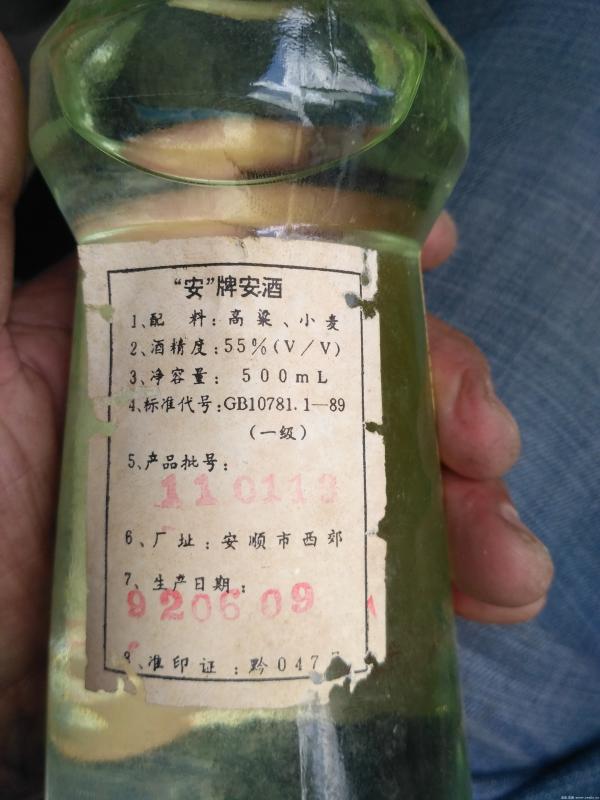 “安”牌安酒
1、配 料：高粱、小麦
2、酒精度：55%(V/V)
3、净容量： 500mL
4、标准代号：GB10781.1—89
(一级)
5、产品批号：
110113
6、厂 址：安顺市西郊
7、生产日期：
920609
8、准印证：黔047